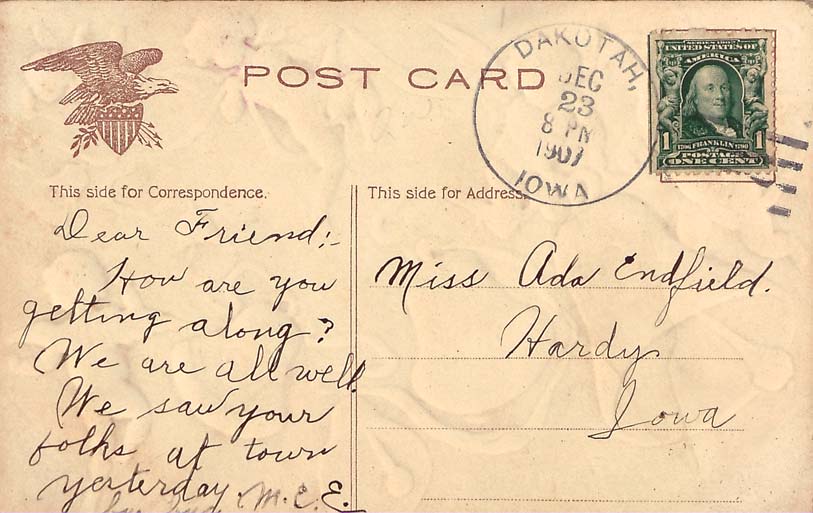 POST CARD
DAKOTAH,
DEC
23
8 PM
1907
IOWA
SERIES 1902
UNITED STATES OF
AMERICA
1 1706 FRANKLIN 1790 1
POSTAGE
ONE CENT
This side for Correspondence.
Dear Friend:-
How are you
getting along?
We are all well.
We saw your
folks at town
yesterday
M.E.E.
This side for Address.
Miss Ada Endfield.
Hardy
Iowa